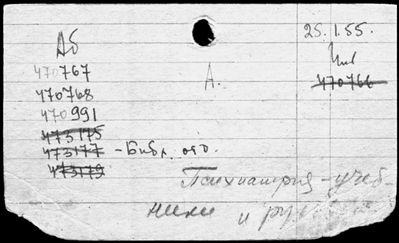 Аб
25.1.55.
470767
Инв
470768
А.
470766
470991
473175
473177 - Библ. отд.
473179
Психиатрия - учеб-
ники и рук